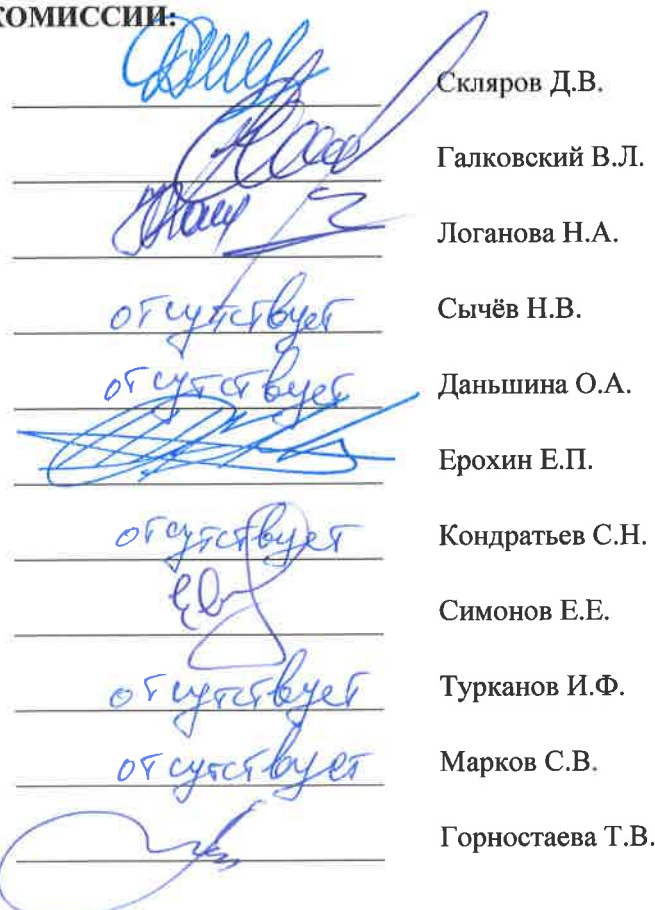 КОМИССИИ:
Скляров Д.В.
Галковский В.Л.
Логанова Н.А.
отсутствует Сычёв Н.В.
отсутствует Даньшина О.А.
Ерохин Е.П.
отсутствует Кондратьев С.Н.
Симонов Е.Е.
отсутствует Турканов И.Ф.
отсутствует Марков С.В.
Горностаева Т.В.